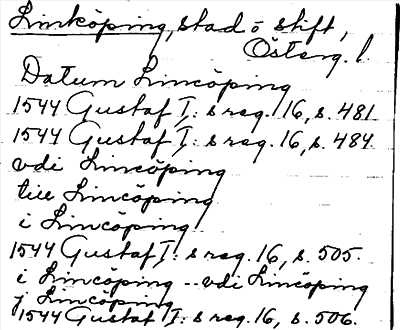 Linköping, stad o stift,
Österg. l.
Datum Lincöping
1544 Gustaf I: s reg. 16, s. 481
1544 Gustaf I: s reg. 16, s. 484
vdi Lincöping
till Lincöping
i Lincöping
1544 Gustaf I: s reg. 16, s. 505.
i Lincöping -- vdi Lincöping
j Lincöping
1544 Gustaf I: s reg. 16, s. 506.